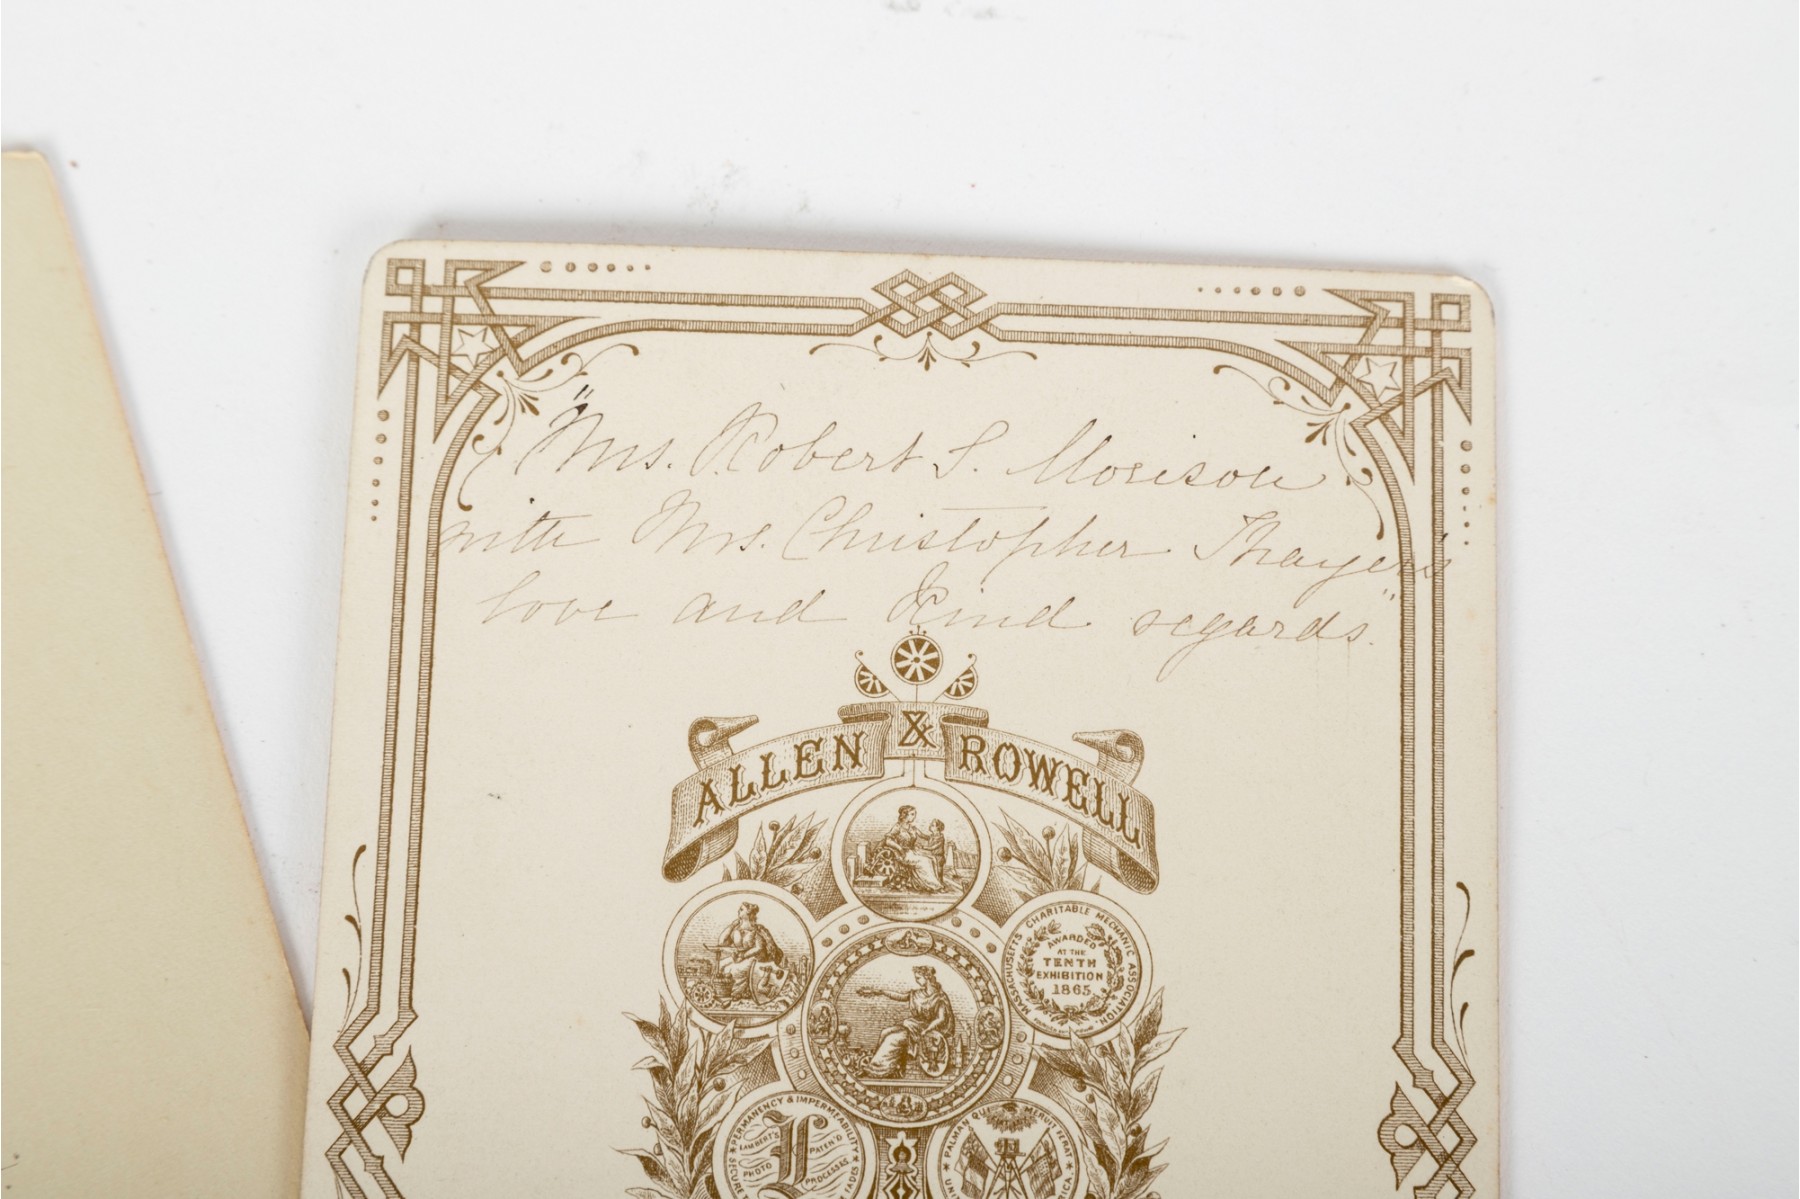 "Mrs. Robert S. Morison
with Mrs. Christopher Thayer's
love and Kind regards."
ALLEN & ROWELL
MASSACHUSETTS CHARITABLE MECHANIC ASSOCIATION.
AWARDED
AT THE
TENTH
EXHIBITION
1865.
PERMANENCY & IMPERMEABILITY
SECURE
LAMBERT'S PATEN'D
PHOTO PROCESSES
L
PALMAM QUI MERUIT FERAT